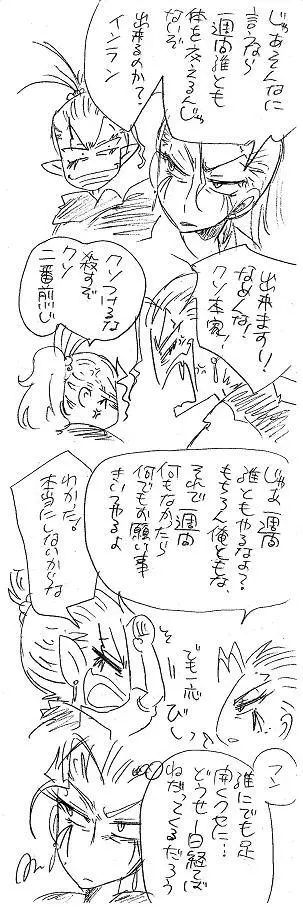 じゃあそんなに
言うなら
一週間誰とも
体を交えるんじゃ
ないぞ
出来るのか?
インラン
出来ますし!
なめんな!
クソ本家!
クソつけるな
殺すぞ
クソ
二番煎じ
じゃあ一週間
誰ともやるなよ?
もちろん俺ともな、
それで一週間
何もなかったら
何でもお願い事
きいてやるよ
わかった。
本当にしないからな
でも一応
びぃっ
フン
誰にでも足
開くクセに…
どうせ一日経てば
ねだってくるだろう